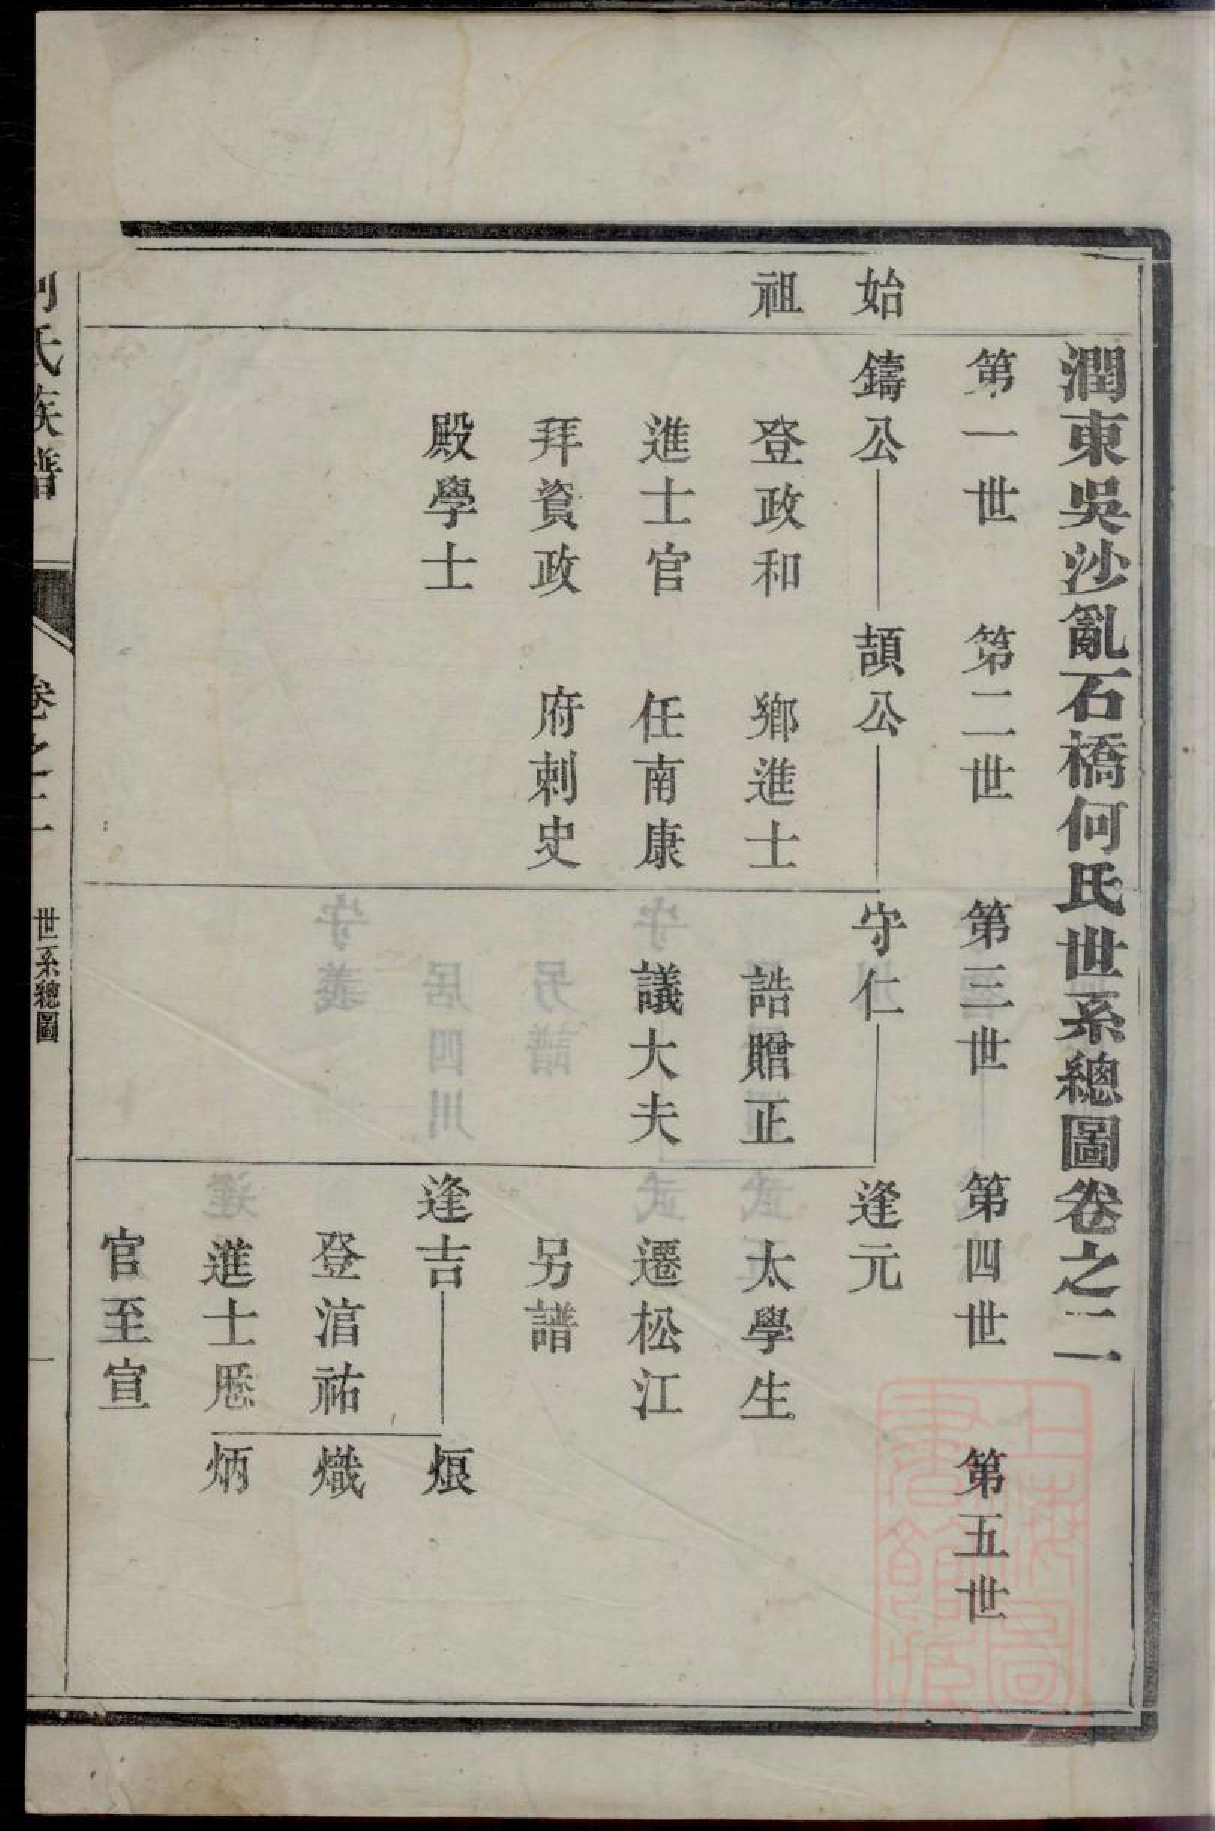 潤東吳沙亂石橋何氏世系總圖卷之二
第一世 第二世 第三世 第四世 第五世
始 鑄公 頡公 守仁 逢元
祖 登政和 鄉進士 誥贈正 太學生
進士官 任南康 議大夫 遷松江
拜資政 府刺史 另譜
殿學士 逢吉 烺
登涫祐 熾
進士歷 炳
官至宣
何氏族譜 卷之二 世系總圖 一
上海圖書館藏